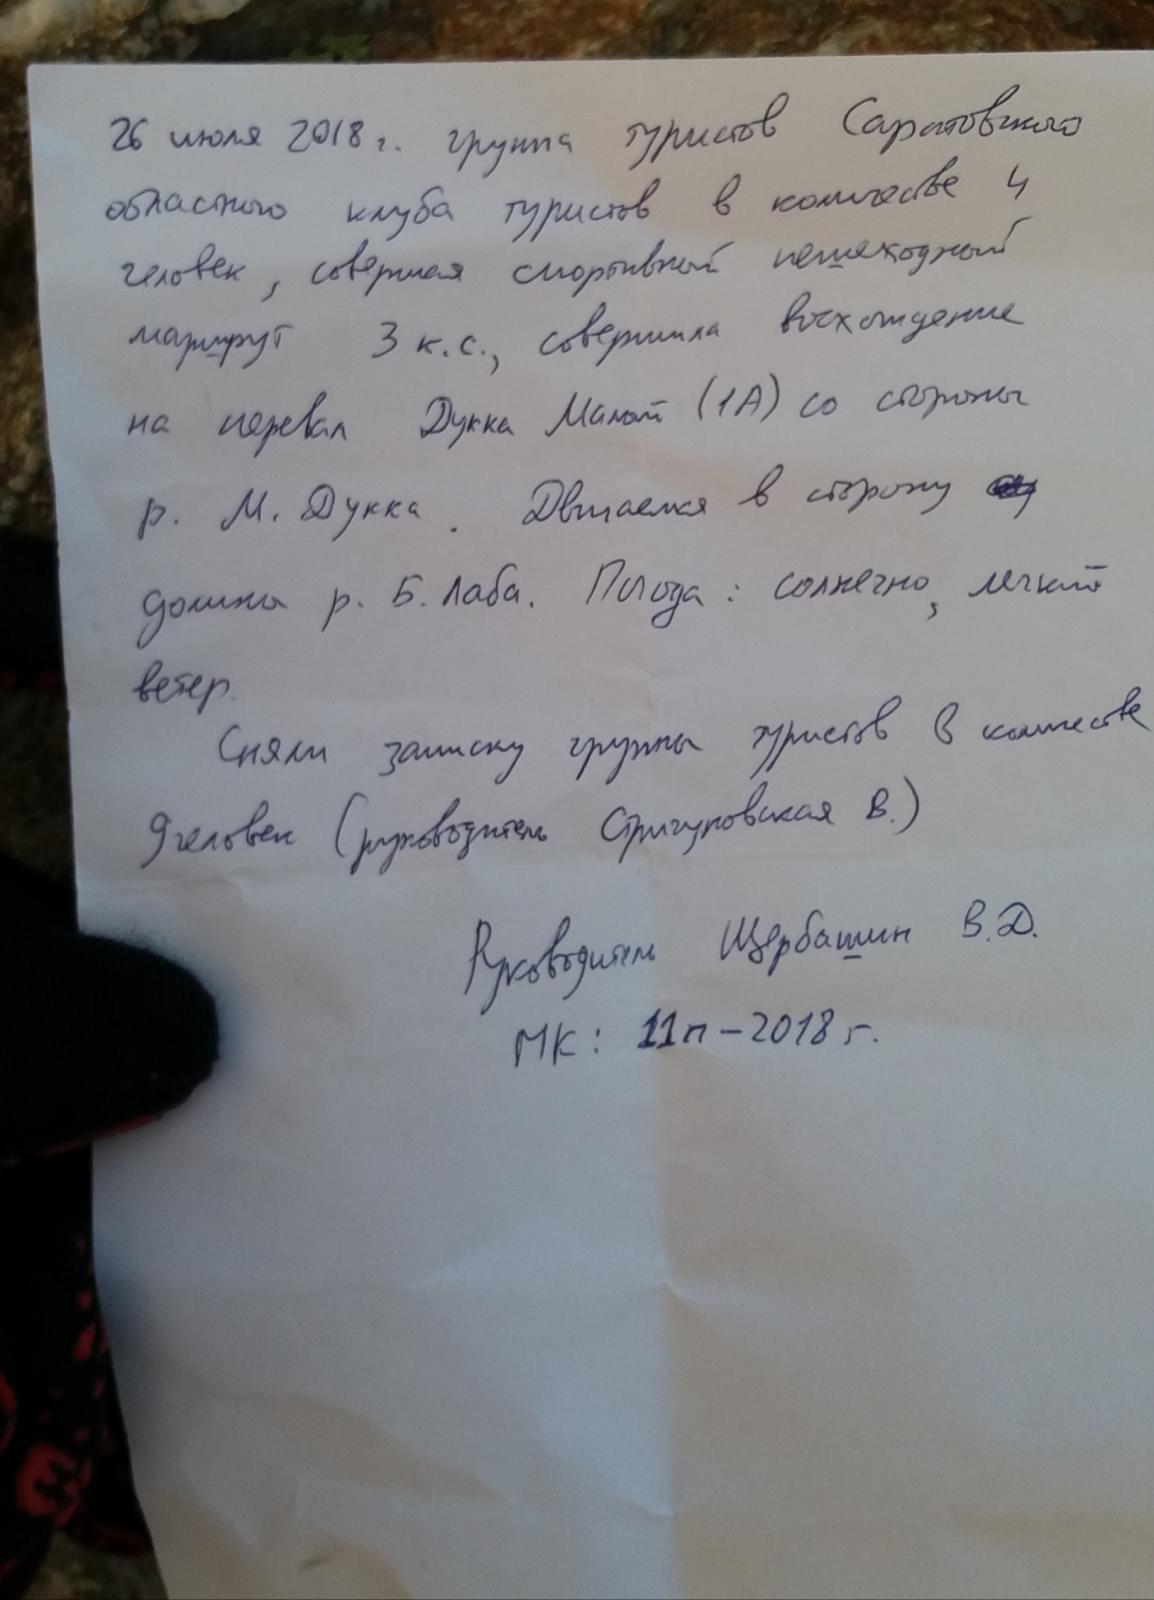 26 июля 2018 г. группа туристов Саратовского
областного клуба туристов в количестве 4
человек, совершая спортивный пешеходный
маршрут 3 к.с., совершила восхождение
на перевал Дукка Малый (1А) со стороны
р. М. Дукка. Двигаемся в сторону
долины р. Б. Лаба. Погода: солнечно, легкий
ветер.
Сняли записку группы туристов в количестве
9 человек (руководитель Стригуновская В.)
Руководитель Щербашин В.Д.
МК: 11п-2018 г.